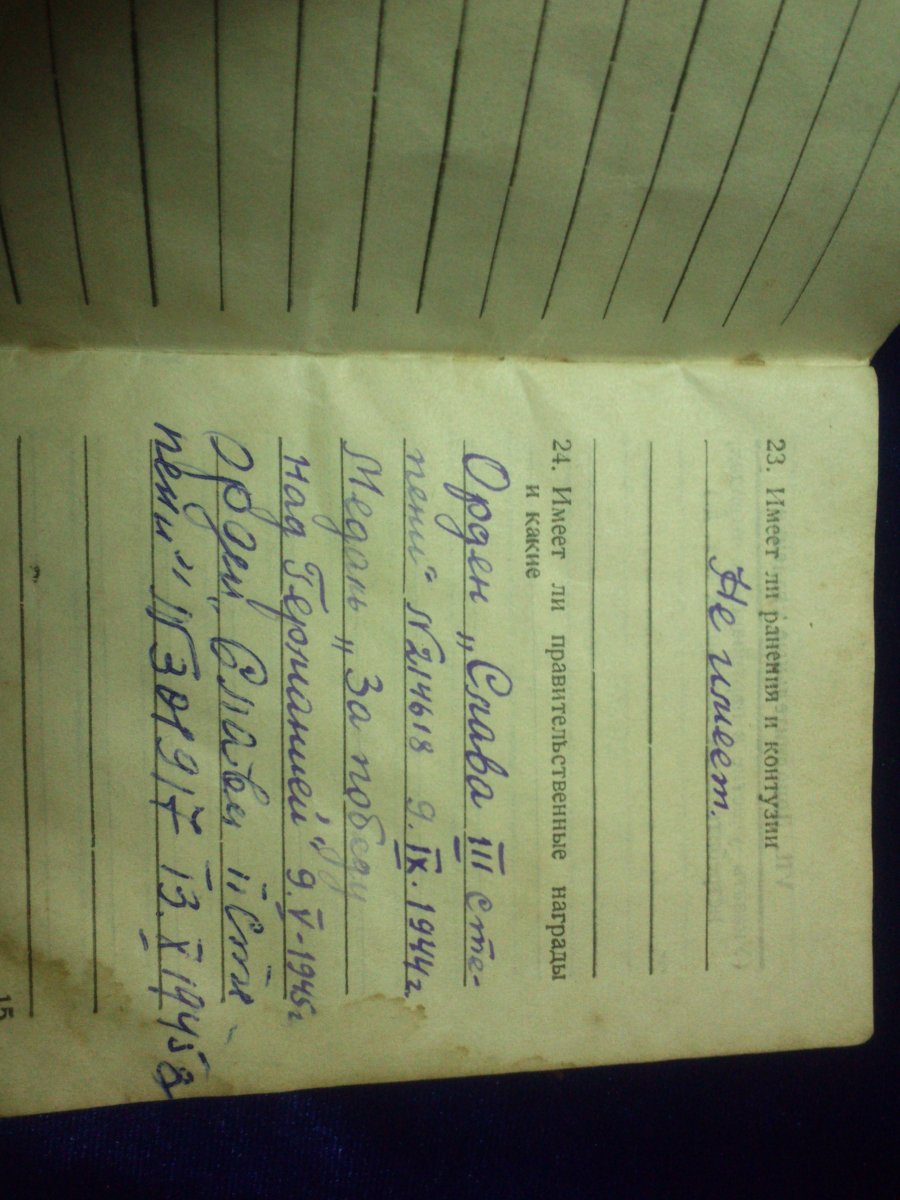 23. Имеет ли ранения и контузии
Не имеет.
24. Имеет ли правительственные награды
и какие
Орден „Слава III сте-
пени“ №214618 9.IX.1944г.
Медаль „За победу
над Германией“ 9.V-1945г
Орден „Славы II Сте
пени“ 13.V 1945г
15